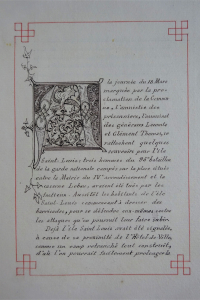 la journée du 18 Mars
marquée par la pro-
clamation de la Commu-
ne, l'arrestation des
prisonniers, l'assassinat
des généraux Lecomte
et Clément Thomas, se
rattachent quelques
souvenirs pour l'île
Saint-Louis; trois hommes du bataillon
de la garde nationale campés sur la place située
entre la Mairie du IVe arrondissement et la
caserne Lobau, avaient été tués par les
Aussitôt les habitants de l'île
Saint-Louis commencèrent à dresser des
barricades, pour se défendre eux-mêmes contre
les attaques qu'on pourrait leur faire subir.
Déjà l'île Saint-Louis avait été signalée,
à cause de sa proximité de l'Hôtel de Ville,
comme un camp retranché tout construit,
d'où l'on pourrait facilement prolonger la